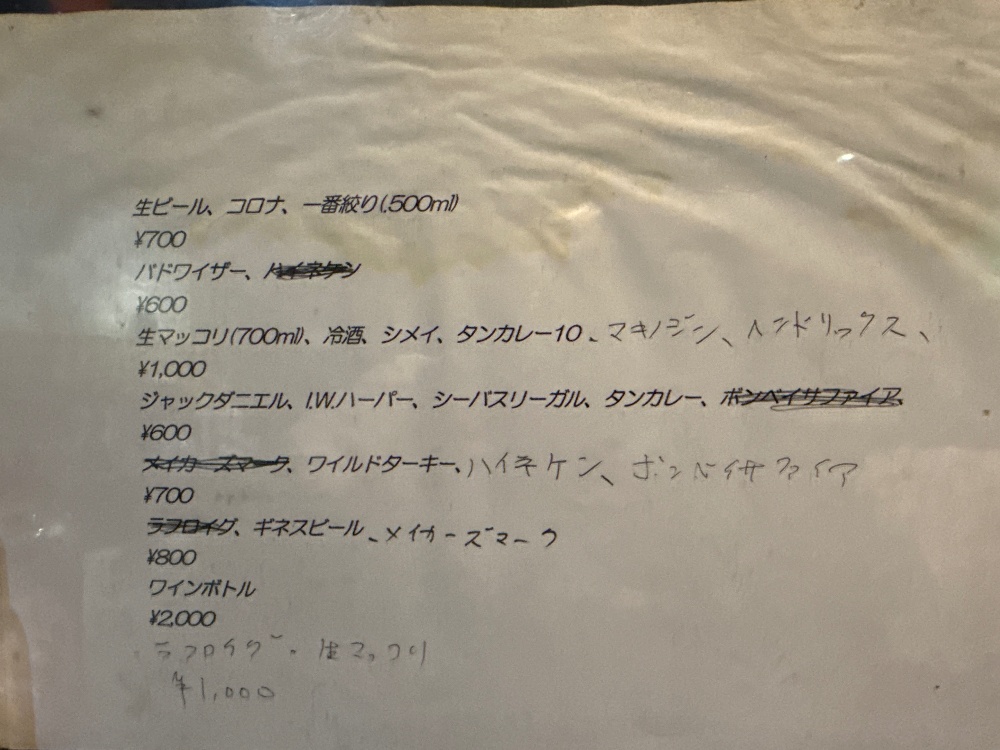 生ビール、コロナ、一番絞り(.500ml)
¥700
バドワイザー、ハイネケン
¥600
生マッコリ(700ml)、冷酒、シメイ、タンカレー10、マキノジン、ヘンドリックス、
¥1,000
ジャックダニエル、I.W.ハーパー、シーバスリーガル、タンカレー、ボンベイサファイア、
¥600
メイカーズマーク、ワイルドターキー、ハイネケン、ボンベイサファイア
¥700
ラフロイグ、ギネスビール、メイカーズマーク
¥800
ワインボトル
¥2,000
ラフロイグ、生マッコリ
¥1,000